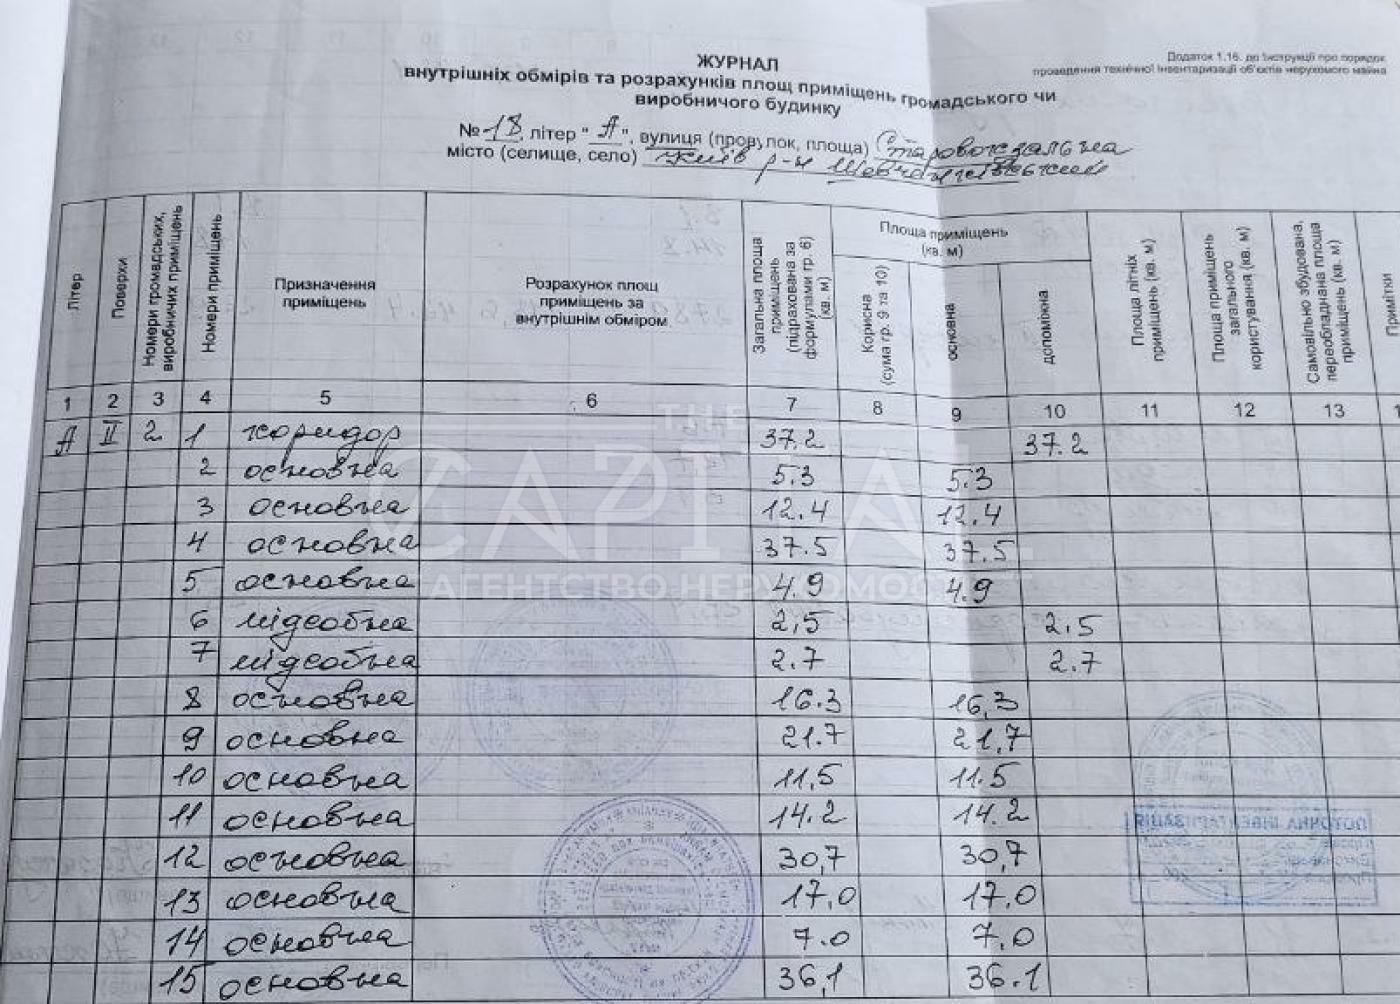 Додаток 1.16. до Інструкції про порядок
проведення технічної інвентаризації об'єктів нерухомого майна
ЖУРНАЛ
внутрішніх обмірів та розрахунків площ приміщень громадського чи
виробничого будинку
№ 18, літер " А ", вулиця (провулок, площа) Старовокзальна
місто (селище, село) Київ р-н Шевченківський
Літер
Поверхи
Номери громадських, виробничих приміщень
Номери приміщень
Призначення приміщень
Розрахунок площ приміщень за внутрішнім обміром
Загальна площа приміщень (підрахована за формулами гр. 6) (кв. м)
Площа приміщень (кв. м)
Корисна (сума гр. 9 та 10)
основна
допоміжна
Площа літніх приміщень (кв. м)
Площа приміщень загального користування (кв. м)
Самовільно збудована, переобладнана площа приміщень (кв. м)
Примітки
1 2 3 4 5 6 7 8 9 10 11 12 13
А II 2 1 коридор 37.2 37.2
2 основна 5.3 5.3
3 основна 12.4 12.4
4 основна 37.5 37.5
5 основна 4.9 4.9
6 підсобна 2,5 2.5
7 підсобна 2.7 2.7
8 основна 16.3 16,3
9 основна 21.7 21,7
10 основна 11,5 11.5
11 основна 14.2 14.2
12 основна 30,7 30,7
13 основна 17,0 17,0
14 основна 7.0 7,0
15 основна 36,1 36.1
THE
CAPITAL
АГЕНТСТВО НЕРУХОМОСТІ
ПОТОЧНА ІНВЕНТАРИЗАЦІЯ